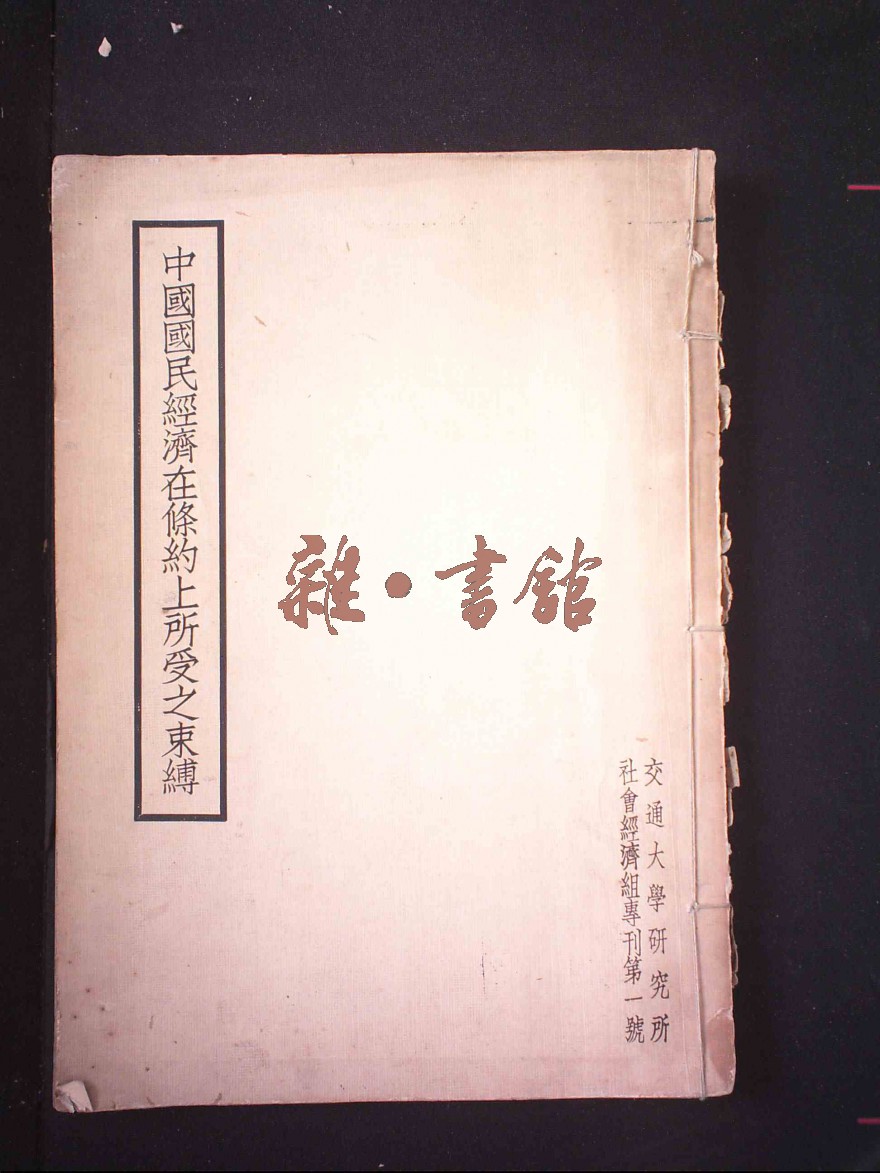 交通大學研究所
社會經濟組專刊第一號
雜•書館
中國國民經濟在條約上所受之束縛